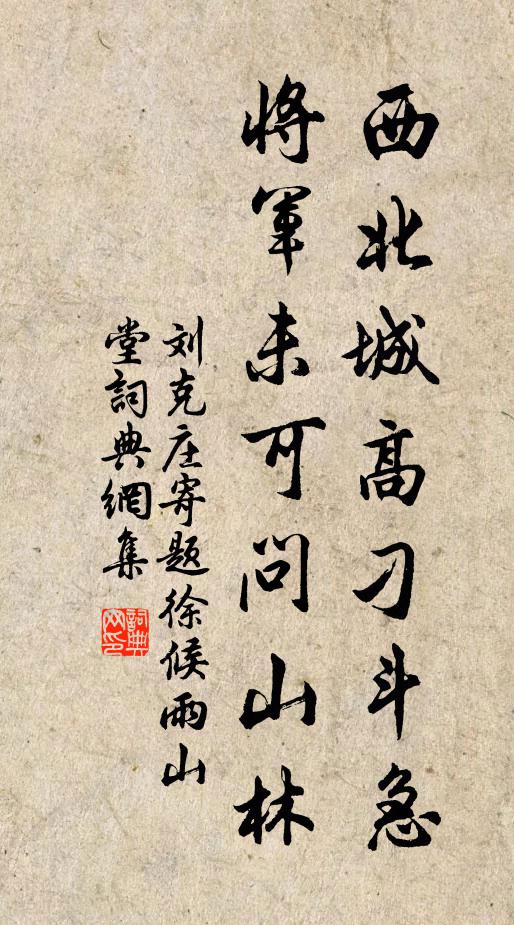 西北城高刁斗急
将军未可问山林
刘克庄寄题徐候雨山
堂詞典網集
詞典网印